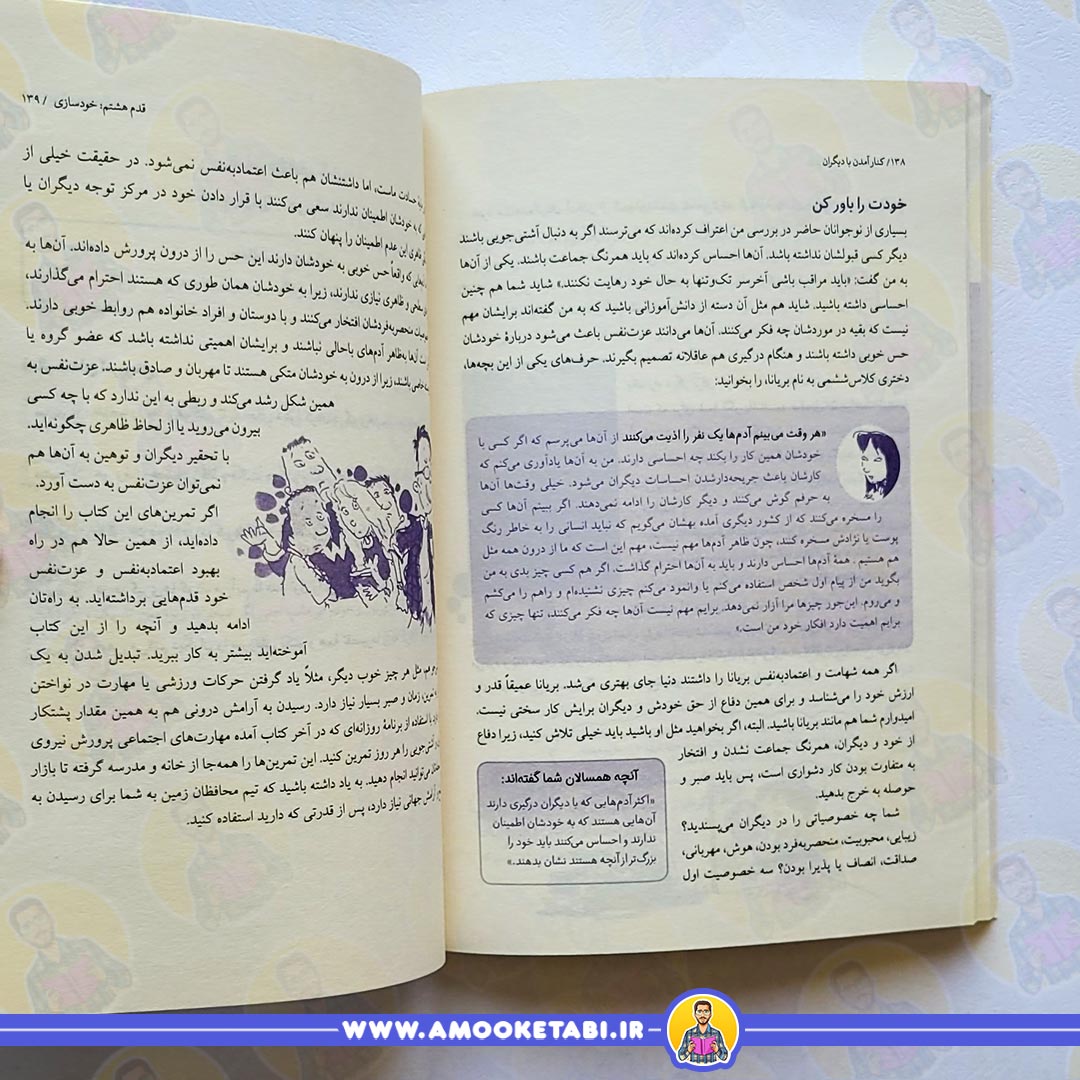 ۱۳۸/ کنار آمدن با دیگران
خودت را باور کن
بسیاری از نوجوانان حاضر در بررسی من اعتراف کرده‌اند که می‌ترسند اگر به دنبال آشتی‌جویی باشند
دیگر کسی قبولشان نداشته باشد. آن‌ها احساس کرده‌اند که باید همرنگ جماعت باشند. یکی از آن‌ها
به من گفت: «باید مراقب باشی آخرسر تک‌وتنها به حال خود رهایت نکنند.» شاید شما هم چنین
احساسی داشته باشید. شاید هم مثل آن دسته از دانش‌آموزانی باشید که به من گفته‌اند برایشان مهم
نیست که بقیه در موردشان چه فکر می‌کنند. آن‌ها می‌دانند عزت‌نفس باعث می‌شود دربارهٔ خودشان
حس خوبی داشته باشند و هنگام درگیری هم عاقلانه تصمیم بگیرند. حرف‌های یکی از این بچه‌ها،
دختری کلاس‌ششمی به نام بریانا، را بخوانید:
«هر وقت می‌بینم آدم‌ها یک نفر را اذیت می‌کنند از آن‌ها می‌پرسم که اگر کسی با
خودشان همین کار را بکند چه احساسی دارند. من به آن‌ها یادآوری می‌کنم که
کارشان باعث جریحه‌دارشدن احساسات دیگران می‌شود. خیلی وقت‌ها آن‌ها
به حرفم گوش می‌کنند و دیگر کارشان را ادامه نمی‌دهند. اگر ببینم آن‌ها کسی
را مسخره می‌کنند که از کشور دیگری آمده بهشان می‌گویم که نباید انسانی را به خاطر رنگ
پوست یا نژادش مسخره کنند، چون ظاهر آدم‌ها مهم نیست، مهم این است که ما از درون همه مثل
هم هستیم. همهٔ آدم‌ها احساس دارند و باید به آن‌ها احترام گذاشت. اگر هم کسی چیز بدی به من
بگوید من از پیام اول شخص استفاده می‌کنم یا وانمود می‌کنم چیزی نشنیده‌ام و راهم را می‌کشم
و می‌روم. این‌جور چیزها مرا آزار نمی‌دهد. برایم مهم نیست آن‌ها چه فکر می‌کنند، تنها چیزی که
برایم اهمیت دارد افکار خود من است.»
اگر همه شهامت و اعتمادبه‌نفس بریانا را داشتند دنیا جای بهتری می‌شد. بریانا عمیقاً قدر و
ارزش خود را می‌شناسد و برای همین دفاع از حق خودش و دیگران برایش کار سختی نیست.
امیدوارم شما هم مانند بریانا باشید. البته، اگر بخواهید مثل او باشید باید خیلی تلاش کنید، زیرا دفاع
از خود و دیگران، همرنگ جماعت نشدن و افتخار
به متفاوت بودن کار دشواری است، پس باید صبر و
حوصله به خرج بدهید.
شما چه خصوصیاتی را در دیگران می‌پسندید؟
زیبایی، محبوبیت، منحصربه‌فرد بودن، هوش، مهربانی،
صداقت، انصاف یا پذیرا بودن؟ سه خصوصیت اول
آنچه همسالان شما گفته‌اند:
«اکثر آدم‌هایی که با دیگران درگیری دارند
آن‌هایی هستند که به خودشان اطمینان
ندارند و احساس می‌کنند باید خود را
بزرگ‌تر از آنچه هستند نشان بدهند.»
قدم هشتم: خودسازی / ۱۳۹
حسادت ماست، اما داشتنشان هم باعث اعتمادبه‌نفس نمی‌شود. در حقیقت خیلی از
که به خودشان اطمینان ندارند سعی می‌کنند با قرار دادن خود در مرکز توجه دیگران یا
این عدم اطمینان را پنهان کنند.
که واقعاً حس خوبی به خودشان دارند این حس را از درون پرورش داده‌اند. آن‌ها به
ظاهری نیازی ندارند، زیرا به خودشان همان طوری که هستند احترام می‌گذارند،
منحصربه‌فردشان افتخار می‌کنند و با دوستان و افراد خانواده هم روابط خوبی دارند.
آن‌ها به‌ظاهر آدم‌های باحالی نباشند و برایشان اهمیتی نداشته باشد که عضو گروه یا
خاصی باشند، زیرا از درون به خودشان متکی هستند تا مهربان و صادق باشند. عزت‌نفس به
همین شکل رشد می‌کند و ربطی به این ندارد که با چه کسی
بیرون می‌روید یا از لحاظ ظاهری چگونه‌اید.
با تحقیر دیگران و توهین به آن‌ها هم
نمی‌توان عزت‌نفس به دست آورد.
اگر تمرین‌های این کتاب را انجام
داده‌اید، از همین حالا هم در راه
بهبود اعتمادبه‌نفس و عزت‌نفس
خود قدم‌هایی برداشته‌اید. به راه‌تان
ادامه بدهید و آنچه را از این کتاب
آموخته‌اید بیشتر به کار ببرید. تبدیل شدن به یک
مثل هر چیز خوب دیگر، مثلاً یاد گرفتن حرکات ورزشی یا مهارت در نواختن
تمرین، زمان و صبر بسیار نیاز دارد. رسیدن به آرامش درونی هم به همین مقدار پشتکار
با استفاده از برنامهٔ روزانه‌ای که در آخر کتاب آمده مهارت‌های اجتماعی پرورش نیروی
آشتی‌جویی را هر روز تمرین کنید. این تمرین‌ها را همه‌جا از خانه و مدرسه گرفته تا بازار
می‌توانید انجام دهید. به یاد داشته باشید که تیم محافظان زمین به شما برای رسیدن به
آرامش جهانی نیاز دارد، پس از قدرتی که دارید استفاده کنید.
WWW.AMOOKETABI.IR